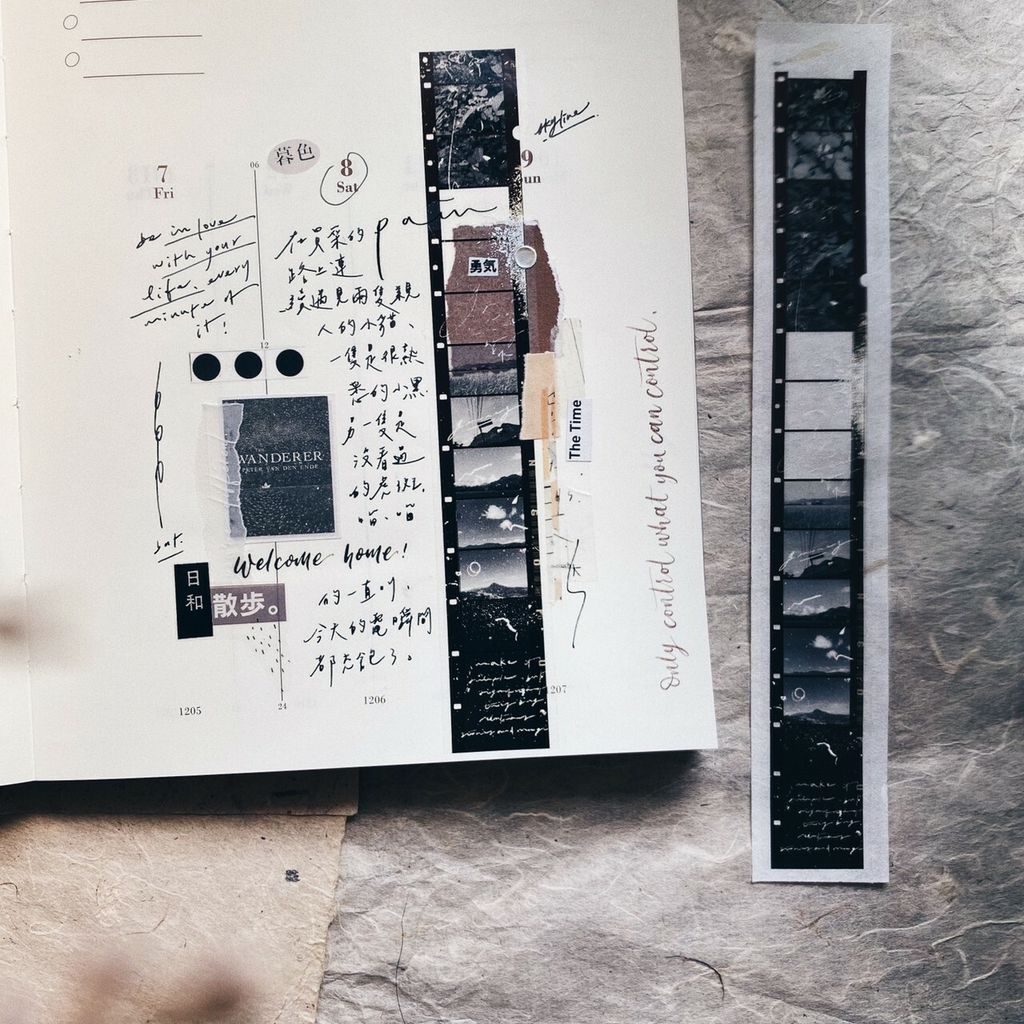 暮色
7
Fri
06
8
Sat
9
skyline.
be in love
with your
life. every
minute of
it!
12
在買菜的
路上連
續遇見兩隻親
人的小貓、
一隻是很熟
悉的小黑
另一隻是
沒看過
的虎斑,
喵、喵
WANDERER
PETER VAN DEN ENDE
sat.
welcome home!
的一直叫、
今天的電瞬間
都充飽了。
日和
散歩。
勇気
The Time
Only control what you can control.
1205
24
1206
1207
make it
make it